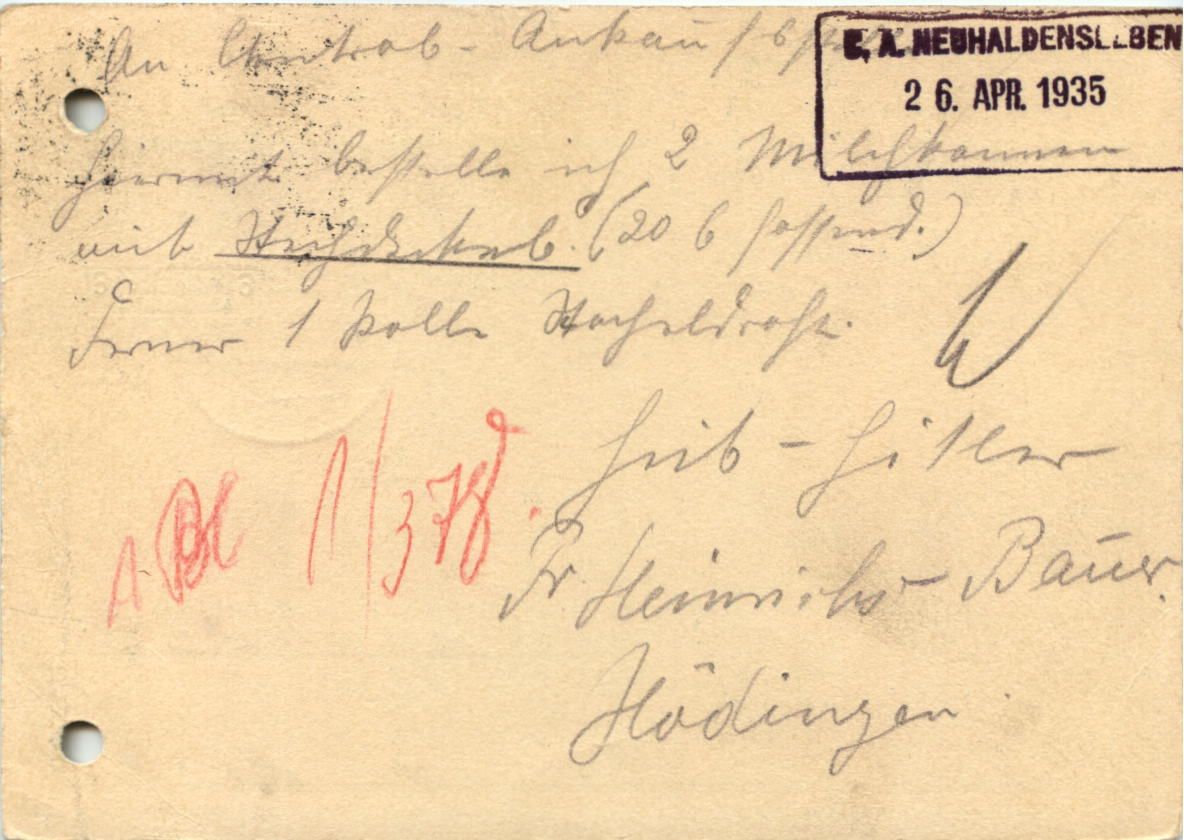 E. A. NEUHALDENSLEBEN
26. APR. 1935
An Central-Ankaufs
Hiermit bestelle ich 2 Milchkannen
mit (20 l fassend.)
Ferner 1 Rolle Stacheldraht.
Heil-Hitler
Fr. Heinrichs Bauer.
Hödingen
1/378